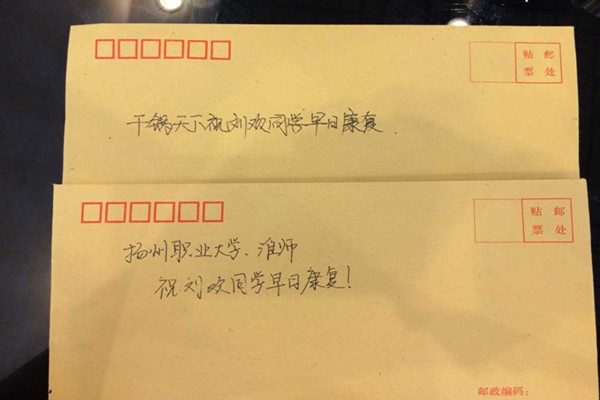 贴 邮
票 处
干锅天下祝刘欢同学早日康复
贴 邮
票 处
扬州职业大学、淮师
祝刘欢同学早日康复!
邮政编码: